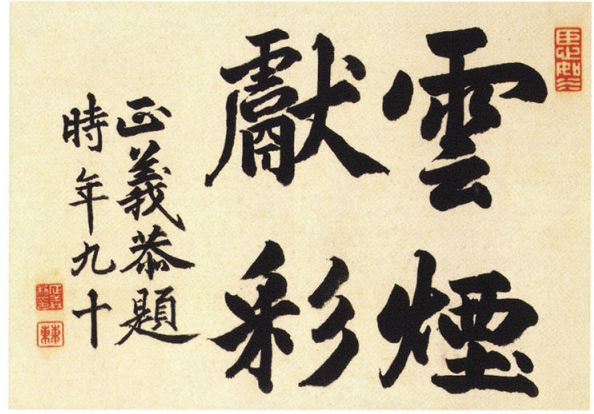 雲煙
獻彩
正義恭題
時年九十